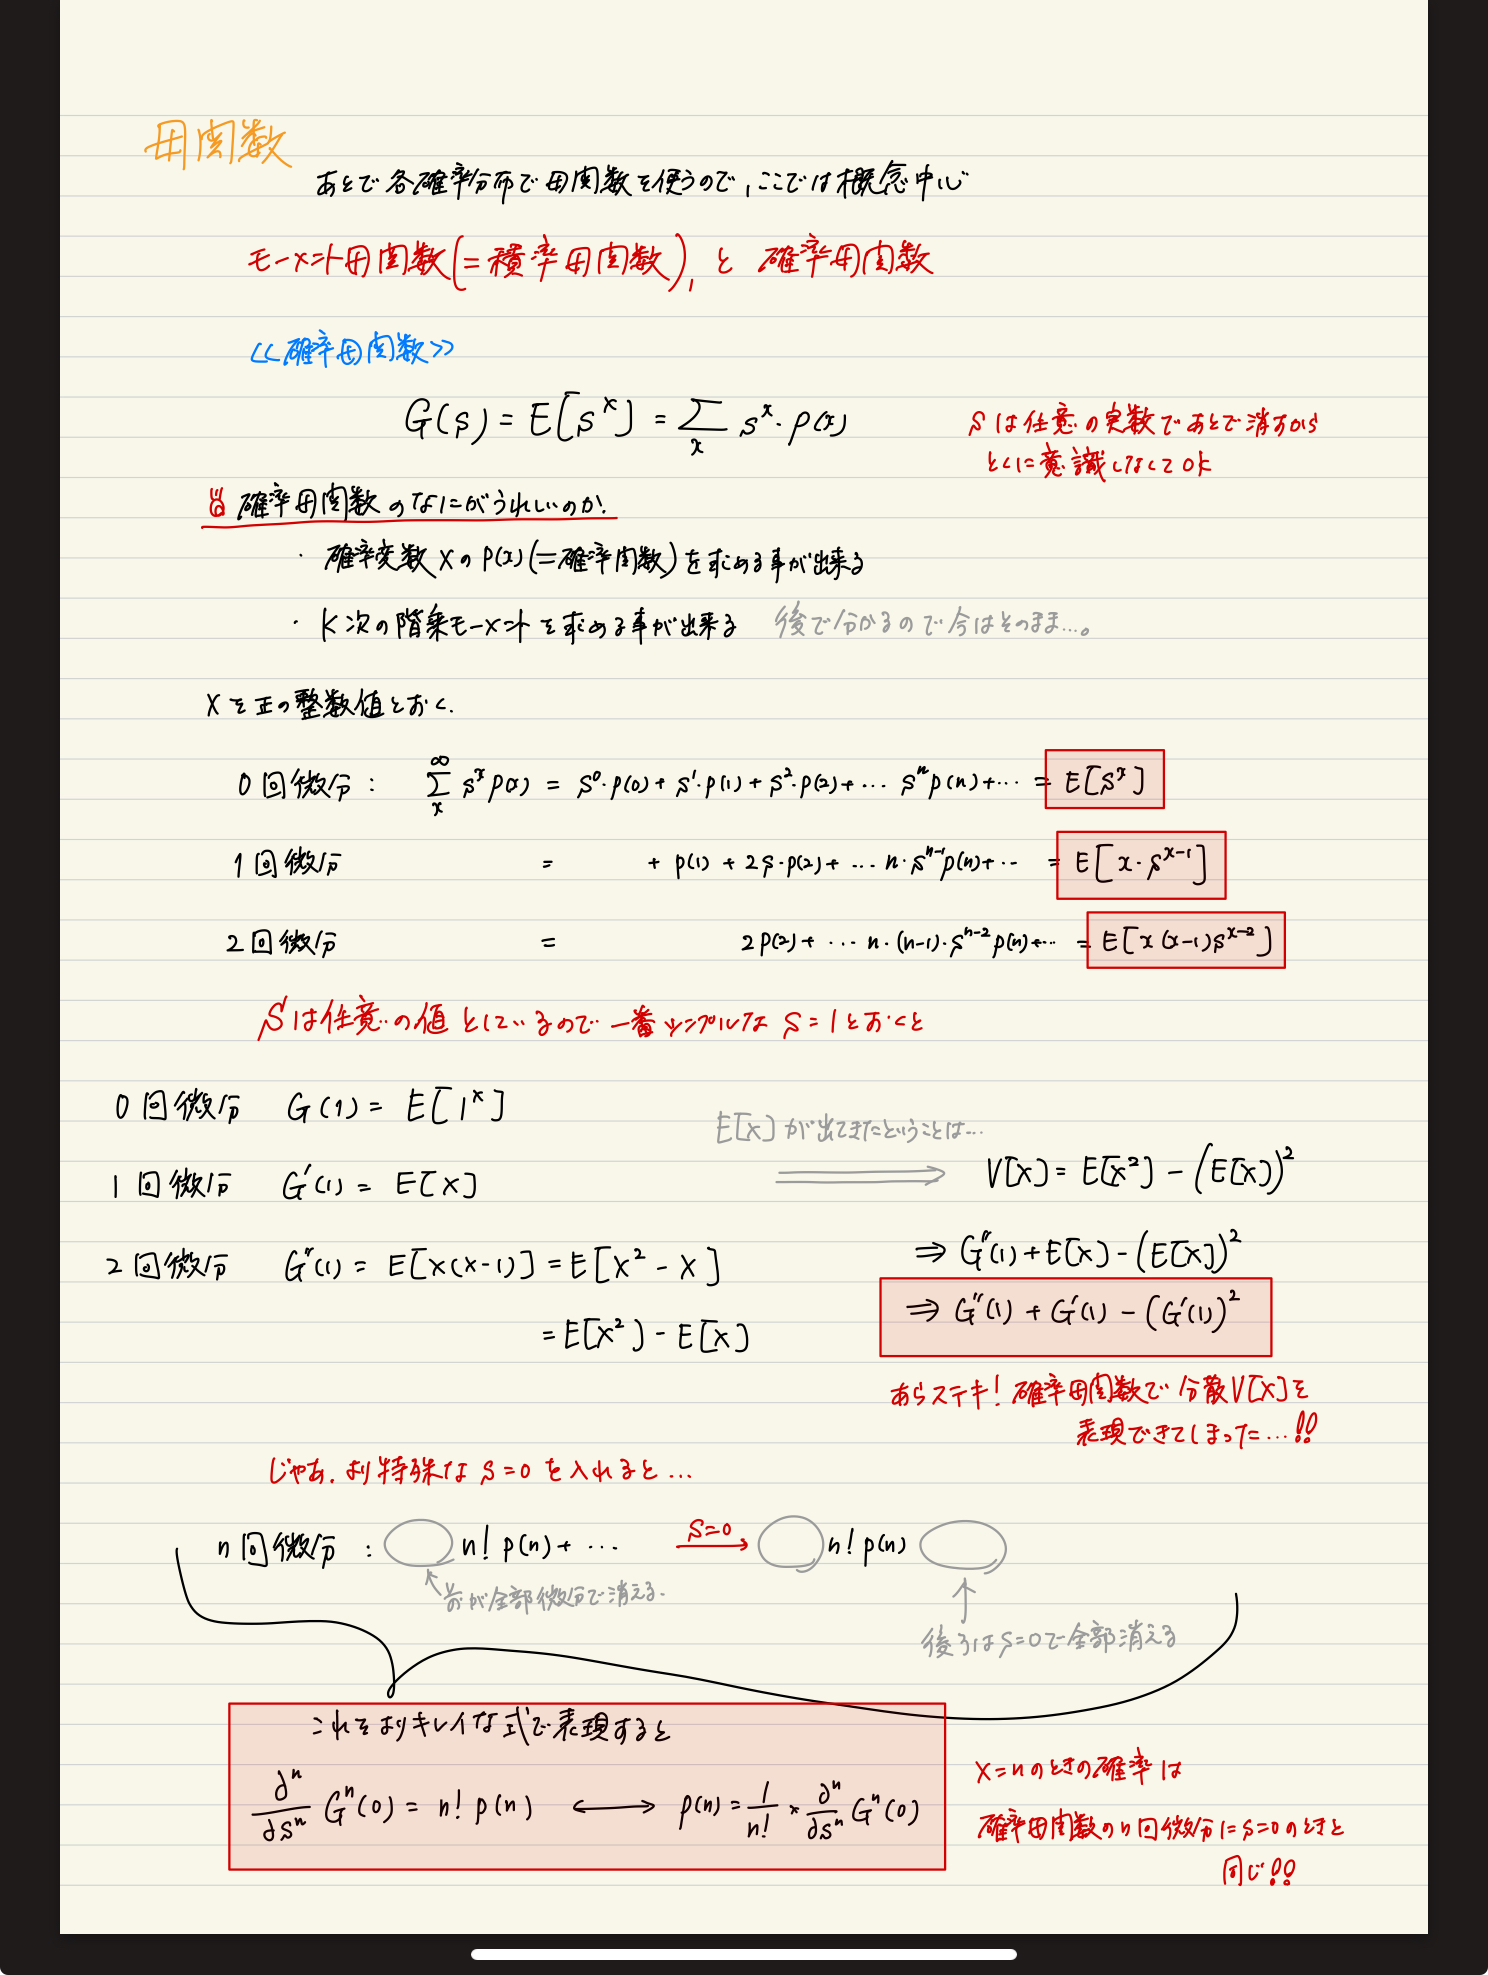 母関数
あとで各確率分布で母関数を使うので、ここでは概念中心
モーメント母関数(=積率母関数), と 確率母関数
≪確率母関数≫
G(s) = E[s^x] = Σ_x s^x・p(x)
sは任意の実数であとで消すから
とくに意識しなくてOK
確率母関数のなにがうれしいのか.
・確率変数XのP(x)(=確率関数)を求める事が出来る
・K次の階乗モーメントを求める事が出来る 後で分かるので今はそのまま…。
Xを正の整数値とおく.
0回微分: Σ_x^∞ s^x p(x) = s^0・p(0) + s^1・p(1) + s^2・p(2) + … s^n p(n) + … = E[s^x]
1回微分 = + p(1) + 2s・p(2) + … n・s^{n-1} p(n) + … = E[x・s^{x-1}]
2回微分 = 2p(2) + … n・(n-1)・s^{n-2} p(n) + … = E[x(x-1)s^{x-2}]
Sは任意の値としているので一番シンプルなs=1とおくと
0回微分 G(1) = E[1^x]
E[X]が出てきたということは…
1回微分 G'(1) = E[X]
⟹ V[X] = E[X²] - (E[X])²
2回微分 G''(1) = E[X(X-1)] = E[X² - X]
⇒ G''(1) + E[X] - (E[X])²
= E[X²] - E[X]
⇒ G''(1) + G'(1) - (G'(1))²
あらステキ!確率母関数で分散V[X]を
表現できてしまった…!!
じゃあ.より特殊なs=0を入れると…
n回微分: n! p(n) + … s=0 → n! p(n)
↖前が全部微分で消える.
↑
後ろはs=0で全部消える
これをよりキレイな式で表現すると
∂^n/∂s^n G^n(0) = n! p(n) ⟷ p(n) = 1/n! × ∂^n/∂s^n G^n(0)
X=nのときの確率は
確率母関数のn回微分にs=0のときと
同じ!!